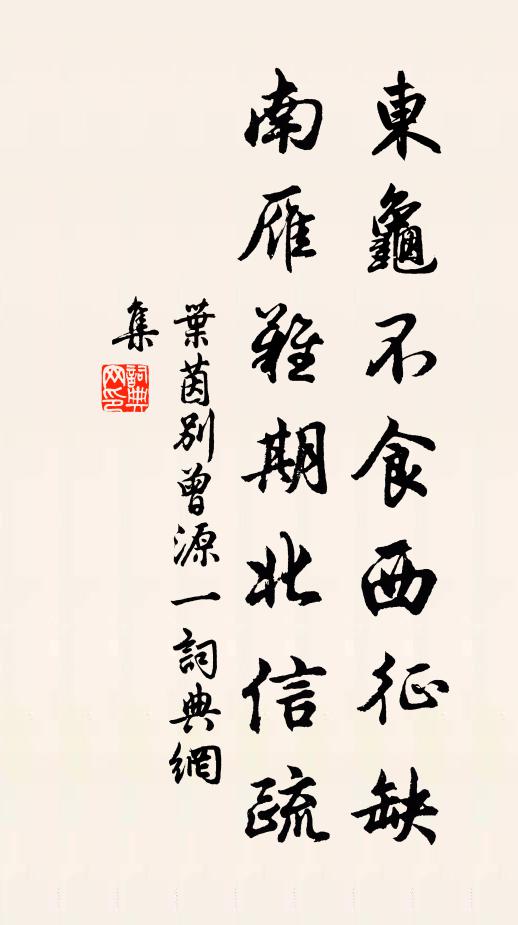 東龜不食西征缺
南雁難期北信疏
葉茵別曾源一詞典網
集
詞典网印